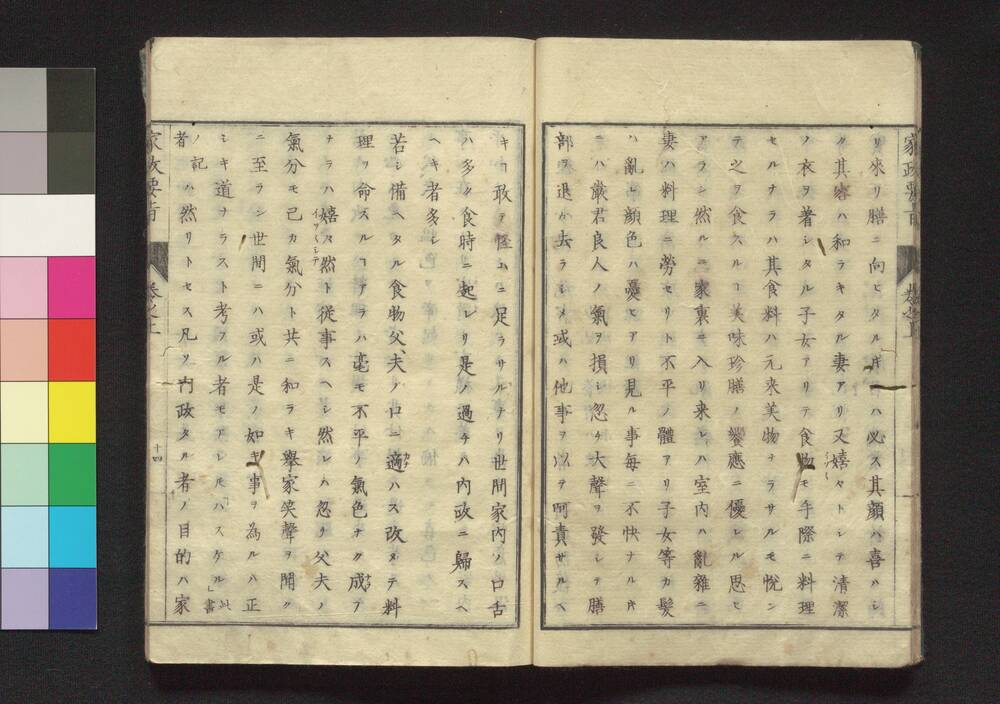 家政要旨
巻之上
リ來リ膳ニ向ヒタル𪜈ハ必ス其顔ハ喜ハシ
ク其容ハ和ラキタル妻アリ又嬉々トシテ清潔
ノ衣ヲ著シタル子女アリテ食物モ手際ニ料理
セルナラハ其食料ハ元来美物ナラサルモ悦ン
テ之ヲ食スルヿ美味珍膳ノ饗應ニ優レル思ヒ
アラン然ルニ家裏ニ入リ来レハ室内ハ亂雜ニ
妻ハ料理ニ勞セリト不平ノ體アリ子女等カ髪
ハ亂レ顔色ハ憂ヒアリ見ル事毎ニ不快ナル𪜈
ニハ嚴君良人ノ氣ヲ損シ忽チ大聲ヲ發シテ膳
部ヲ退ケ去ラシメ或ハ他事ヲ以テ呵責サルヘ
キヿ敢テ怪ムニ足ラサルナリ世間家内ノ口舌
ハ多ク食時ニ起レリ是ノ過チハ内政ニ歸スヘ
ヘキ者多シ
若シ備ヘタル食物父夫ノ口ニ適ハス改メテ料
理ヲ命スルヿアラハ毫モ不平ノ氣色ナク成ラ
ナラハ嬉々然ト従事スヘシ然レハ忽チ父夫ノ
氣分モ己カ氣分ト共ニ和ラキ擧家笑聲ヲ聞ク
ニ至ラン世間ニハ或ハ是ノ如キ事ヲ為ルハ正
シキ道ナラスト考フル者モアレ𪜈ハスケル」此書
ノ記者ハ然リトセス凡ソ内政タル者ノ目的ハ家
家政要旨
巻之上
十四